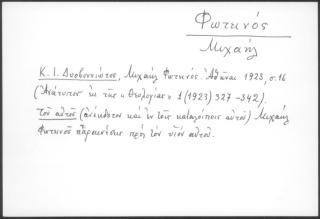 Φωτεινός
Μιχαήλ
Κ. Ι. Δυοβουνιώτου, Μιχαήλ Φωτεινός. Ἀθῆναι 1923, σ. 16
(Ἀνάτυπον ἐκ τῆς «Θεολογίας» 1 (1923) 327 - 342).
Τοῦ αὐτοῦ (ἀνέκδοτον καὶ ἐν τοῖς καταλοίποις αὐτοῦ) Μιχαήλ
Φωτεινοῦ παραινέσεις πρὸς τὸν υἱὸν αὐτοῦ.